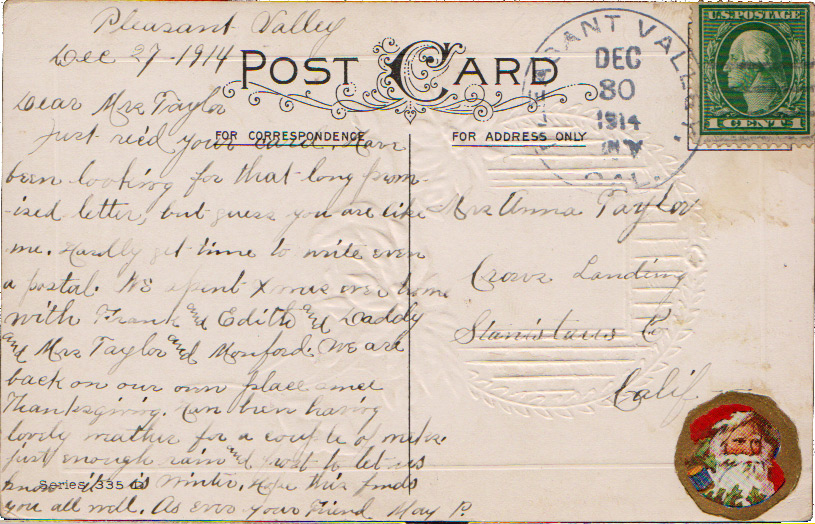 Pleasant Valley
Dec 27-1914
POST CARD
Dear Mrs Taylor
FOR CORRESPONDENCE
Just rec'd your card. Have
been looking for that long prom-
-ised letter, but guess you are like
me. Hardly get time to write even
a postal. We spent Xmas over home
with Frank and Edith and Daddy
and Mrs Taylor and Monford. We are
back on our own place since
Thanksgiving. Have been having
lovely weather for a couple of weeks.
just enough rain and frost to let us
know it is winter. Hope this finds
you all well. As ever your Friend May P.
Series 335
FOR ADDRESS ONLY
Mrs Anna Taylor
Crows Landing
Stanistaus Co
Calif
PLEASANT VALLEY
DEC
30
1914
CAL.
U.S. POSTAGE
1 CENT 1